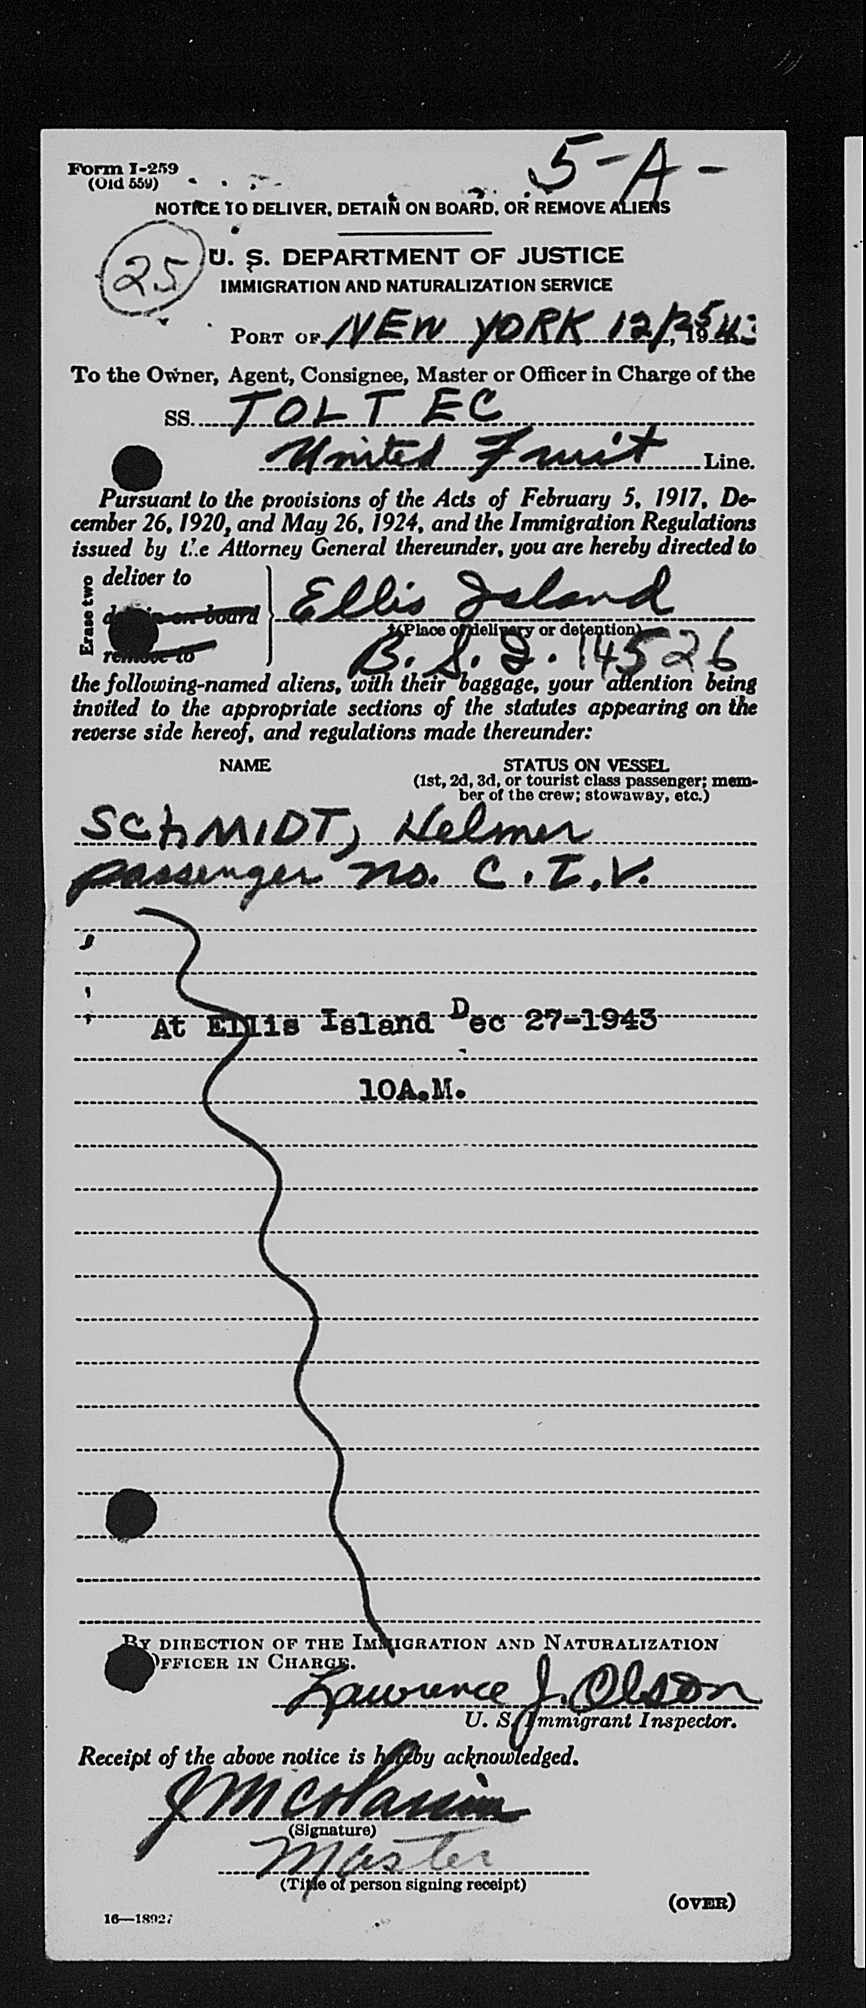 5-A-
Form I-259
(Old 559)
NOTICE TO DELIVER, DETAIN ON BOARD, OR REMOVE ALIENS
25
U. S. DEPARTMENT OF JUSTICE
IMMIGRATION AND NATURALIZATION SERVICE
PORT OF NEW YORK 12/25, 1943
To the Owner, Agent, Consignee, Master or Officer in Charge of the
SS. TOLTEC
United Fruit Line.
Pursuant to the provisions of the Acts of February 5, 1917, De-
cember 26, 1920, and May 26, 1924, and the Immigration Regulations
issued by the Attorney General thereunder, you are hereby directed to
Erase two
deliver to
detain on board
remove to
Ellis Island
(Place of delivery or detention)
B.S.I. 14526
the following-named aliens, with their baggage, your attention being
invited to the appropriate sections of the statutes appearing on the
reverse side hereof, and regulations made thereunder:
NAME STATUS ON VESSEL
(1st, 2d, 3d, or tourist class passenger; mem-
ber of the crew; stowaway, etc.)
SCHMIDT, Helmer
passenger no. C.I.V.
At Ellis Island Dec 27-1943
10A.M.
BY DIRECTION OF THE IMMIGRATION AND NATURALIZATION
OFFICER IN CHARGE.
Lawrence J. Olson
U. S. Immigrant Inspector.
Receipt of the above notice is hereby acknowledged.
(Signature)
Master
(Title of person signing receipt)
(OVER)
16—18927